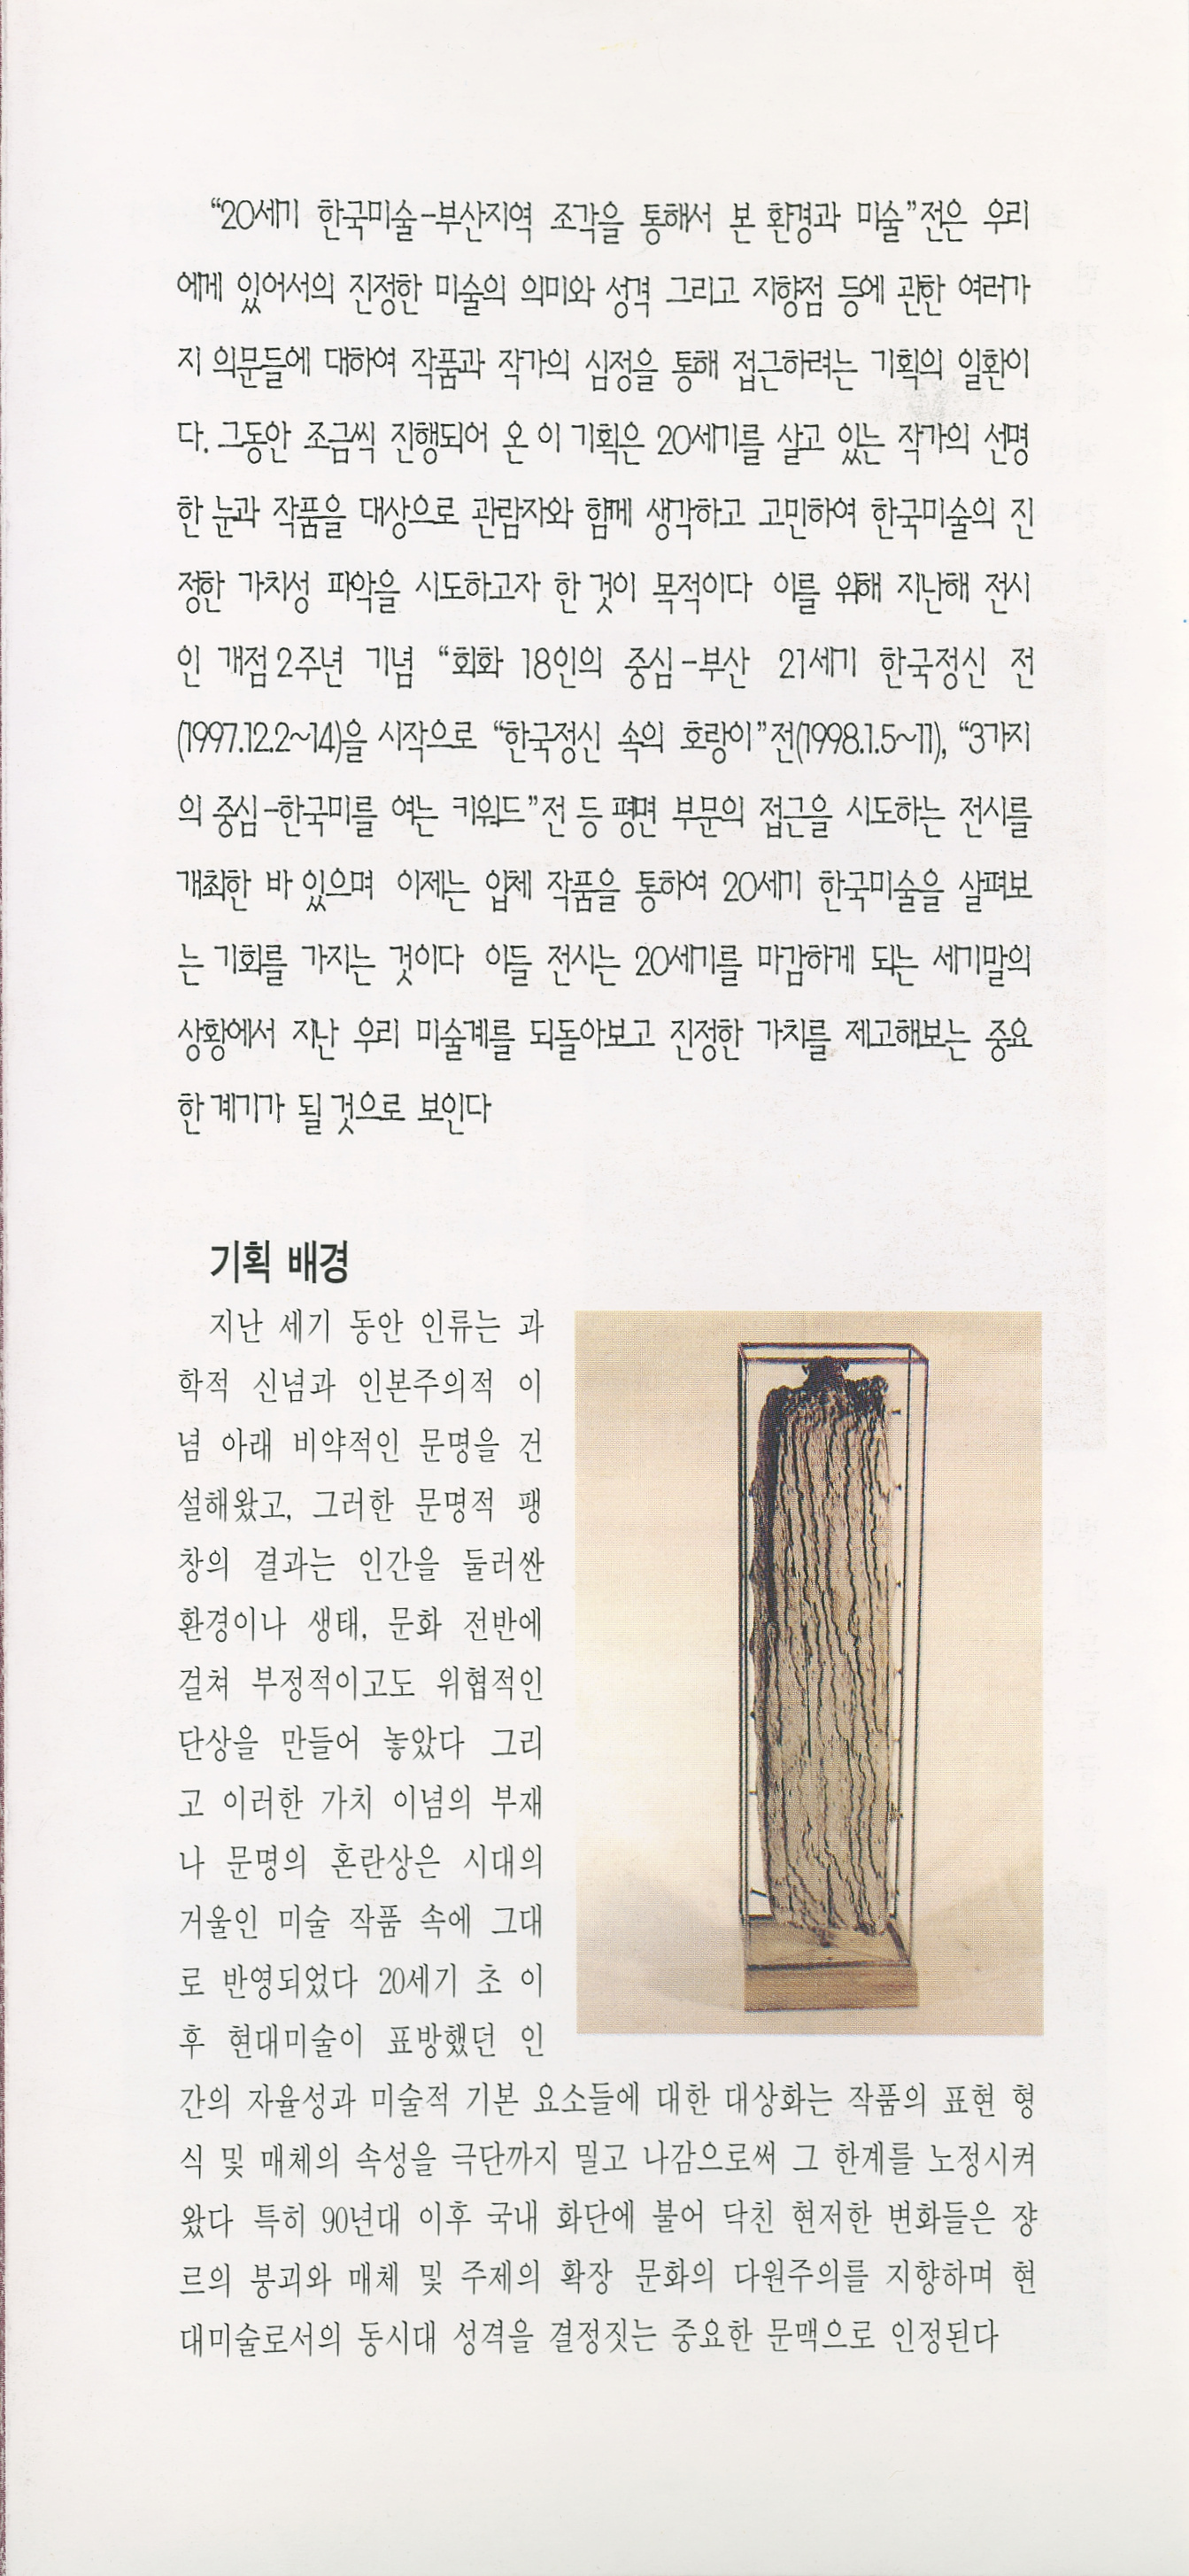 “20세기 한국미술-부산지역 조각을 통해서 본 환경과 미술”전은 우리
에게 있어서의 진정한 미술의 의미와 성격 그리고 지향점 등에 관한 여러가
지 의문들에 대하여 작품과 작가의 심정을 통해 접근하려는 기획의 일환이
다. 그동안 조금씩 진행되어 온 이 기획은 20세기를 살고 있는 작가의 선명
한 눈과 작품을 대상으로 관람자와 함께 생각하고 고민하여 한국미술의 진
정한 가치성 파악을 시도하고자 한 것이 목적이다 이를 위해 지난해 전시
인 개점2주년 기념 “회화 18인의 중심-부산 21세기 한국정신 전
(1997.12.2~14)을 시작으로 “한국정신 속의 호랑이”전(1998.1.5~11), “3가지
의 중심-한국미를 여는 키워드”전 등 평면 부문의 접근을 시도하는 전시를
개최한 바 있으며 이제는 입체 작품을 통하여 20세기 한국미술을 살펴보
는 기회를 가지는 것이다 이들 전시는 20세기를 마감하게 되는 세기말의
상황에서 지난 우리 미술계를 되돌아보고 진정한 가치를 제고해보는 중요
한 계기가 될 것으로 보인다
기획 배경
지난 세기 동안 인류는 과
학적 신념과 인본주의적 이
념 아래 비약적인 문명을 건
설해왔고, 그러한 문명적 팽
창의 결과는 인간을 둘러싼
환경이나 생태, 문화 전반에
걸쳐 부정적이고도 위협적인
단상을 만들어 놓았다 그리
고 이러한 가치 이념의 부재
나 문명의 혼란상은 시대의
거울인 미술 작품 속에 그대
로 반영되었다 20세기 초 이
후 현대미술이 표방했던 인
간의 자율성과 미술적 기본 요소들에 대한 대상화는 작품의 표현 형
식 및 매체의 속성을 극단까지 밀고 나감으로써 그 한계를 노정시켜
왔다 특히 90년대 이후 국내 화단에 불어 닥친 현저한 변화들은 쟝
르의 붕괴와 매체 및 주제의 확장 문화의 다원주의를 지향하며 현
대미술로서의 동시대 성격을 결정짓는 중요한 문맥으로 인정된다